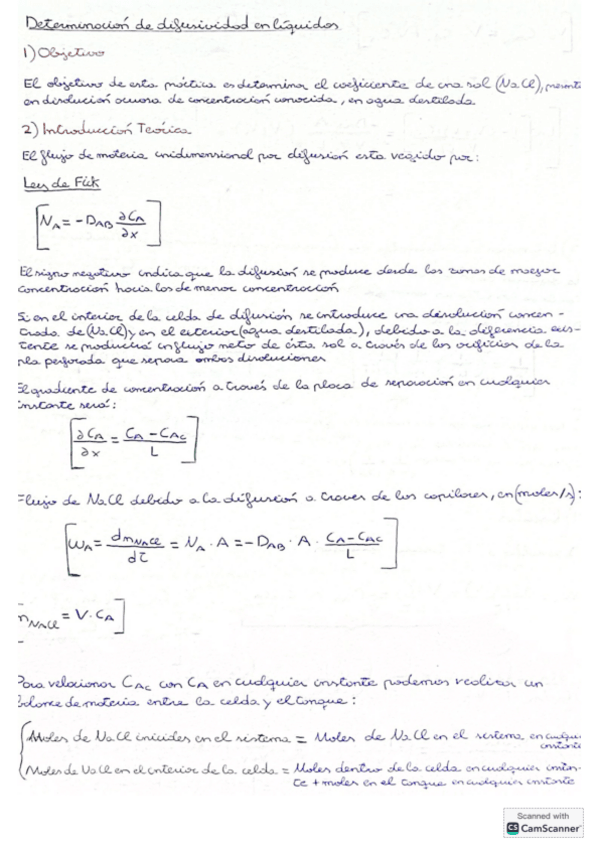 Determinación de difusividad en líquidos
1) Objetivo
El objetivo de esta práctica es determinar el coeficiente de una sal (NaCl), presente
en disolución acuosa de concentración conocida, en agua destilada
2) Introducción Teórica
El flujo de materia unidimensional por difusión esta regido por:
Ley de Fick
[N_A = -D_AB ∂C_A/∂x]
El signo negativo indica que la difusión se produce desde las zonas de mayor
concentración hacia las de menor concentración
Si en el interior de la celda de difusión se introduce una disolución concen-
trada de (NaCl) y en el exterior (agua destilada), debido a la diferencia exis-
tente se producirá un flujo neto de ésta sal a través de los orificios de la
pla perforada que separa ambas disoluciones
El gradiente de concentración a través de la placa de separación en cualquier
instante será:
[∂C_A/∂x = (C_A - C_AC)/L]
Flujo de NaCl debido a la difusión a traves de los capilares, en (moles/s):
[W_A = dm_NaCl/dτ = N_A · A = -D_AB · A · (C_A - C_AC)/L]
n_NaCl = V·C_A]
Para relacionar C_AC con C_A en cualquier instante podemos realizar un
balance de materia entre la celda y el tanque:
Moles de NaCl iniciales en el sistema = Moles de NaCl en el sistema en cualqui
instante
Moles de NaCl en el interior de la celda = Moles dentro de la celda en cualquier instan-
te + moles en el tanque en cualquier instante
Scanned with
CS CamScanner